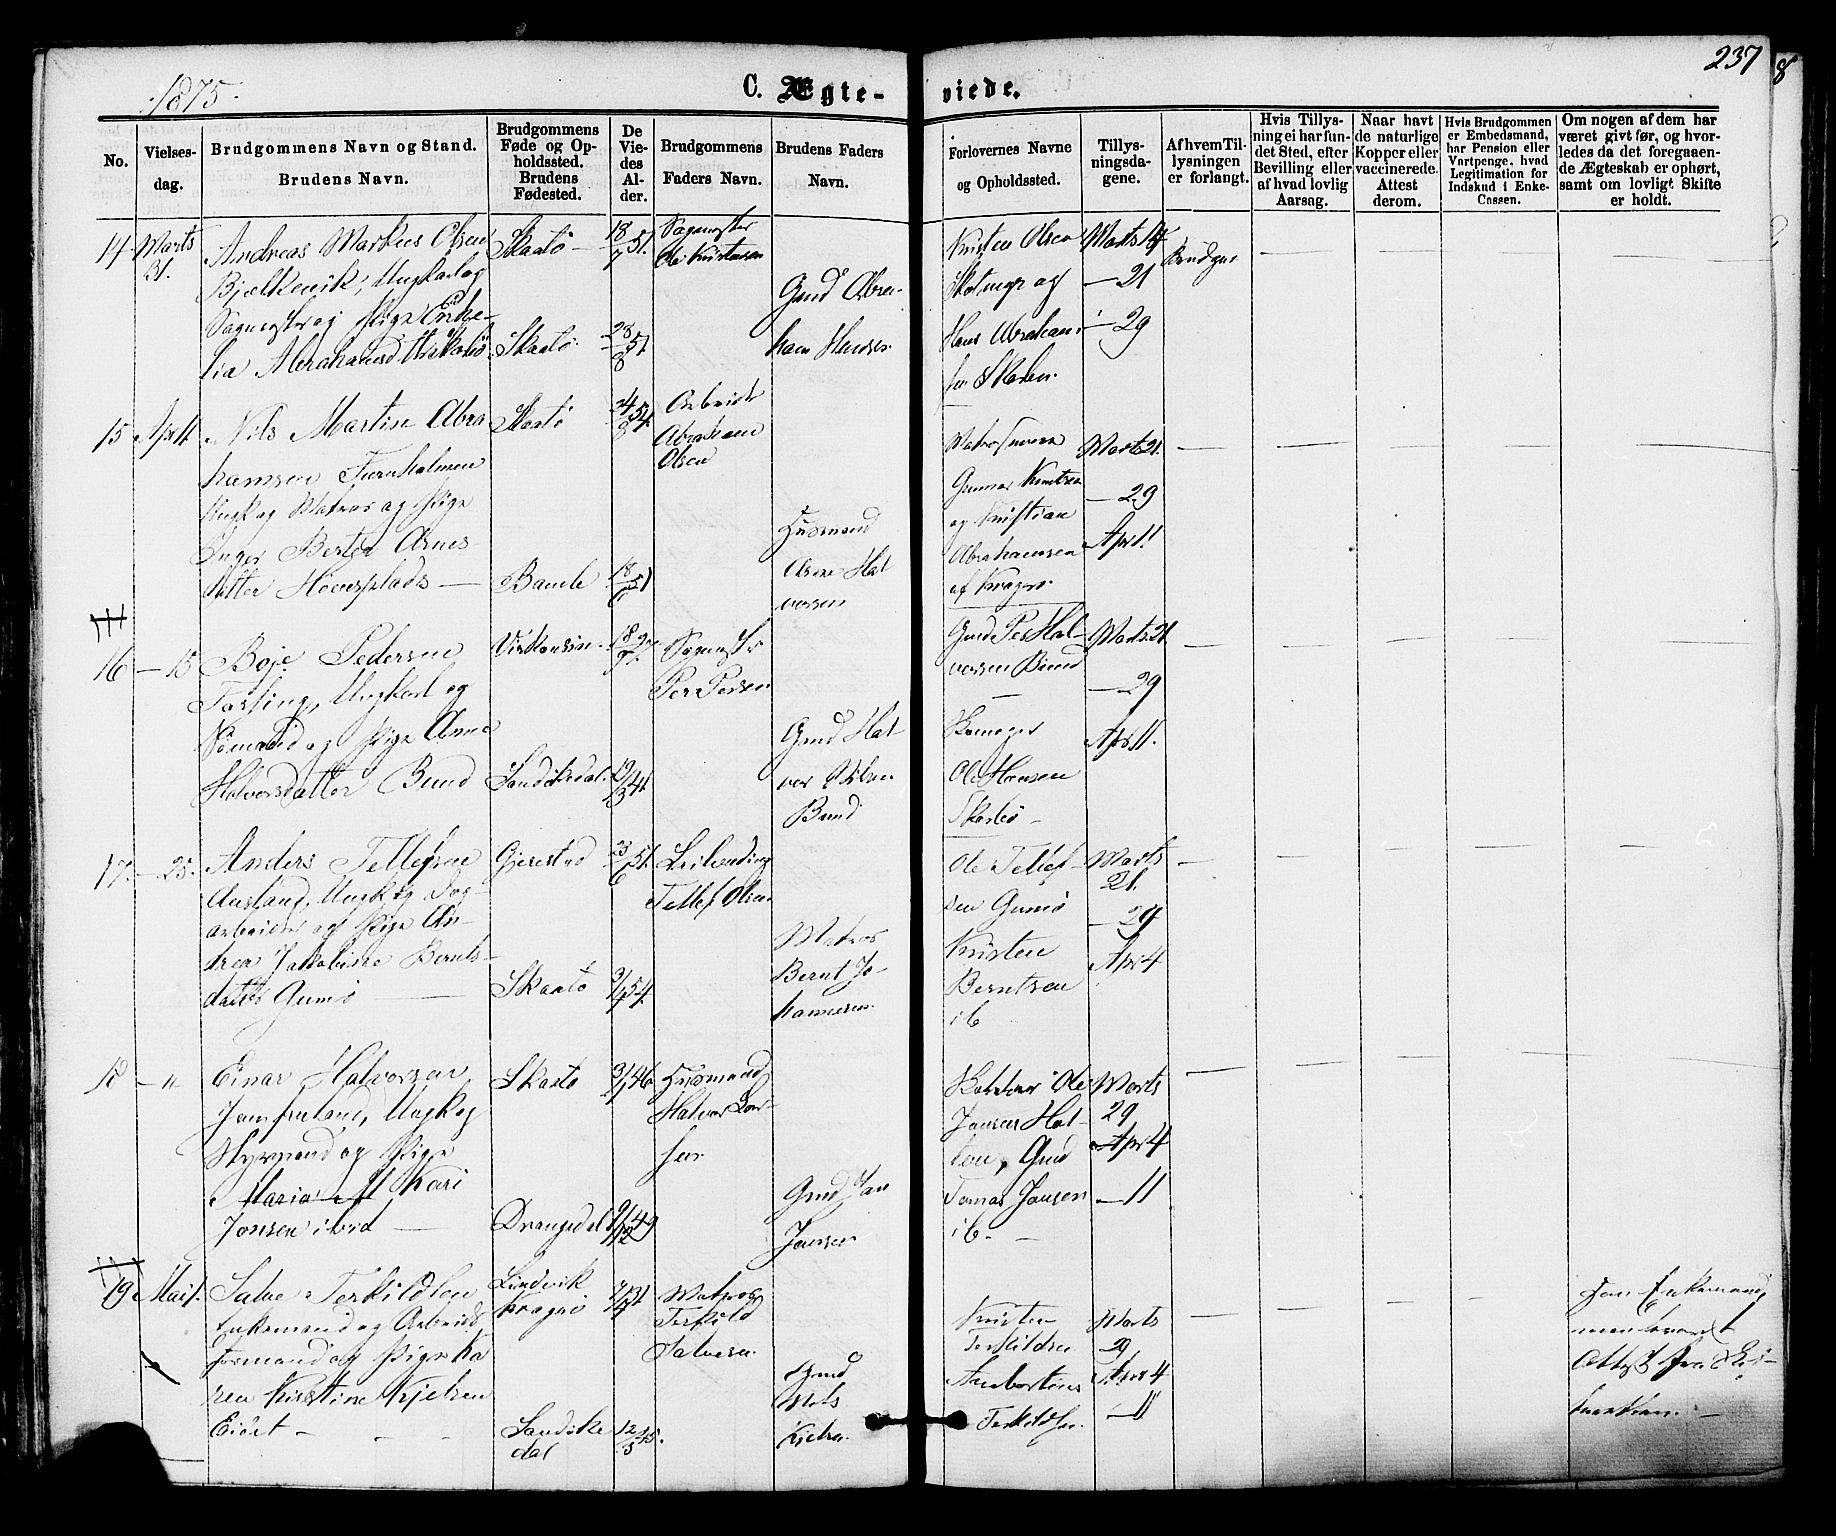 237
8
1875.
C. Ægte-
viede.
No.
Vielses-
dag.
Brudgommens Navn og Stand.
Brudens Navn.
Brudgommens
Føde og Op-
holdssted.
Brudens
Fødested.
De
Vie-
des
Al-
der.
Brudgommens
Faders Navn.
Brudens Faders
Navn.
Forlovernes Navne
og Opholdssted.
Tillys-
ningsda-
gene.
Af hvem Til-
lysningen
er forlangt.
Hvis Tillys-
ning ei har fun-
det Sted, efter
Bevilling eller
af hvad lovlig
Aarsag.
Naar havt
de naturlige
Kopper eller
vaccinerede.
Attest
derom.
Hvis Brudgommen
er Embedsmand,
har Pension eller
Vartpenge, hvad
Legitimation for
Indskud i Enke-
Cassen.
Om nogen af dem har
været givt før, og hvor-
ledes da det foregaaen-
de Ægteskab er ophørt,
samt om lovligt Skifte
er holdt.
14 Marts
31.
Andreas Markus Olsen
Bjælkevik, Ungkarl og
Sagmester og Pige
lia Abrahamsd
Skaatø
Skaatø
18/7 51.
28/8 51
Sagmester
Ole Kristensen
Gmd Abra-
ham Hansen
Kristen Olsen
og
Hans Abraham-
sen
Marts 14
— 21
— 29
Brudgom
15 April 11
Nils Martin Abra
hamsen Furuholmen
Ungk og Matros og Pige
Inger Berte Arnes-
datter Høversplads —
Skaatø
Bamle
24/8 54.
18/6 51
Arbeider
Abraham
Olsen
Husmand
Arne Hal
vorsen
Gunnar Knutsen
og Kristian
Abrahamsen
af Kragerø
Marts 21.
— 29
April 11
16 — 15
Boje Pedersen
Fossing, Ungkarl og
Sømand og Pige Anne
Halvorsdatter Bund
Sandøkedal.
19/3 41.
Sagmester
Per Persen
Gmd Hal
vor
Bund
Gmd Per Hal-
vorsen Bund
Ole Hansen
Marts 21
— 29
April 11.
17. — 25.
Anders Tellefsen
Aasland, Ungk og Dag
arbeider og Pige An-
drea Jakobine Bernts-
datter Gumø —
Gjerestad
Skaatø
23/6 51.
9/1 54.
Leilending
Tellef Olsen
Matros
Bernt Jo-
hannesen
Ole Tellef-
sen Gumø
Kristen
Berntsen
ib
Marts
21.
— 29
Apr 4
18 — "
Einar Halvorsen
Jomfruland, Ungk og
Styrmand og Pige
Maria M Kari
Jonsen ibid —
Skaatø
Drangedal
3/1 46
9/12 49
Husmand
Halvor Lar-
sen
Gmd Jan
Jansen
Ole
Jansen Hol-
ten, Gmd
Tomas Jansen
ib. —
Marts
29
Apr 4
— 11
19 Mai 1.
Salve Terkildsen
Enkemand og Arbeids
formand og Pige Ka
ren Kirstine Kjelsen
Eidet — — —
Lindvik
Kragerø
Sandøke
dal
12/5 45.
Matros
Terkild
Salvesen
Gmd
Mads
Kjelsen
Kristen
Terkildsen
Terkildsen
Marts
29
Apr 4
— 11
Han Enkemand,
Attest fra